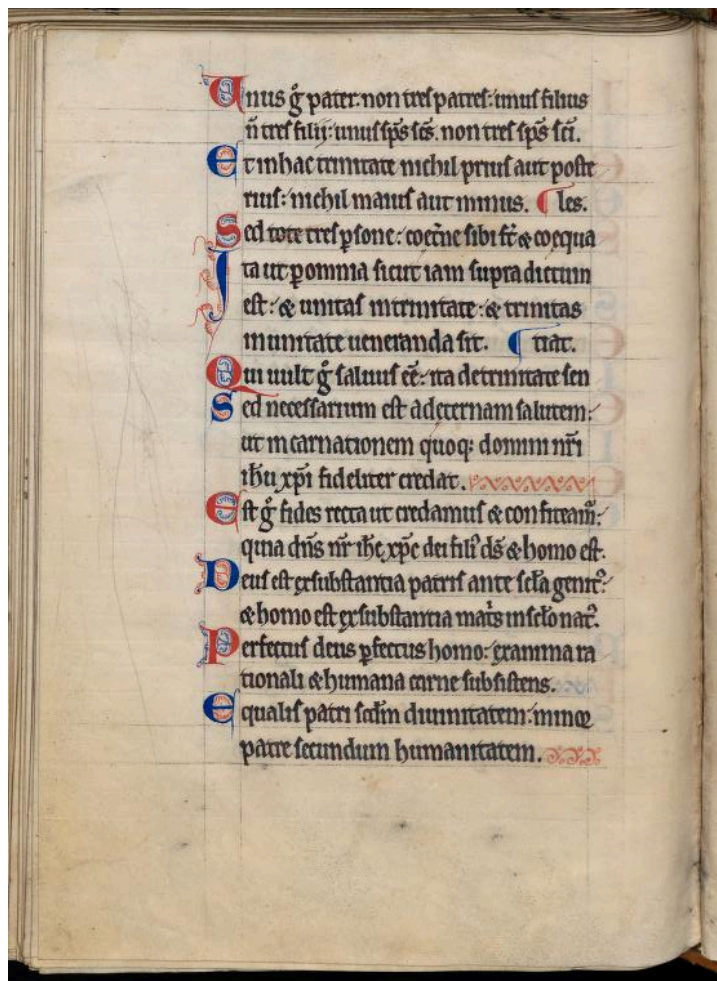 Unus g̊ pater: non tres patres: unus filius
n̄ tres filij: unus sp̄s sc̄s. non tres sp̄s sc̄i.
Et in hac trinitate nichil prius aut poste
rius: nichil maius aut minus. ¶ les.
Sed tote tres p̱sone: coet̄ne sibi st̄ & coequa
Ita ut p̱ omnia sicut iam supra dictum
est: & unitas in trinitate: & trinitas
in unitate ueneranda sit. ¶ tiat.
Qui uult g̊ saluus eē: ita de trinitate sen
Sed necessarium est ad eternam salutem:
ut incarnationem quoq; domini nr̄i
ih̄u xp̄i fideliter credat.
Est g̊ fides recta ut credamus & confiteam̃:
quia dn̄s nr̄ ih̄c xp̄c dei fili᾿ ds̄ & homo est.
Deus est ex substantia patris ante sc̄la genit᾿:
& homo est ex substantia mat̃s in sc̄lo nat᾿.
Perfectus deus p̱fectus homo: ex anima ra
tionali & humana carne subsistens.
Equalis patri sc̄dm diuinitatem: minor
patre secundum humanitatem.